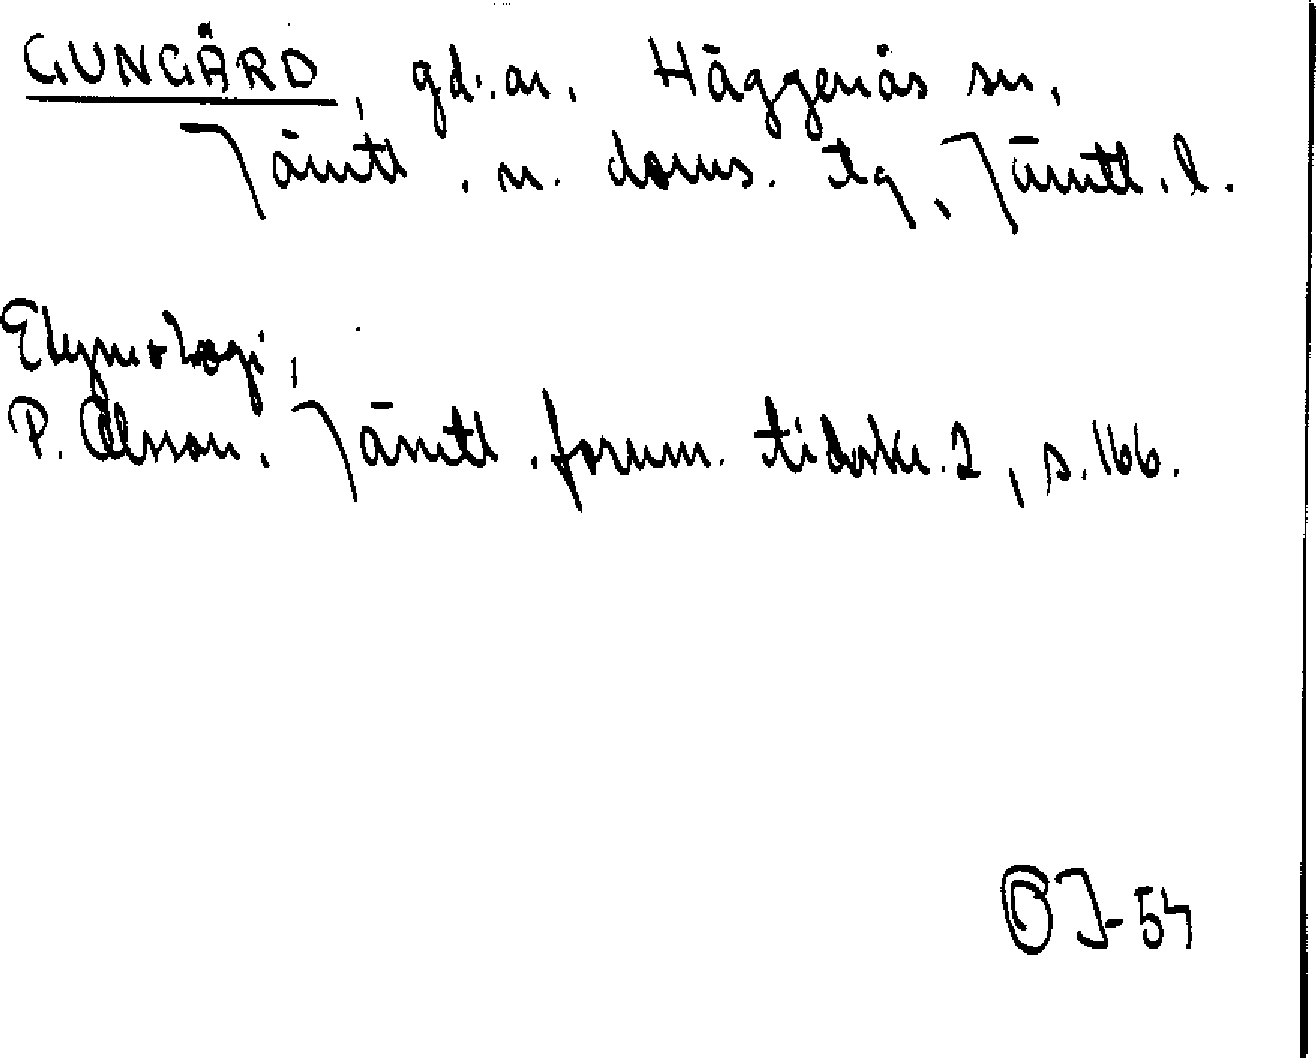 GUNGÅRD, gd.ar. Häggenås sn,
Jämtl. n. doms. tlg, Jämtl. l.
Etymologi,
P. Olsson. Jämtl. fornm. tidskr. 2, s. 166.
OJ-54